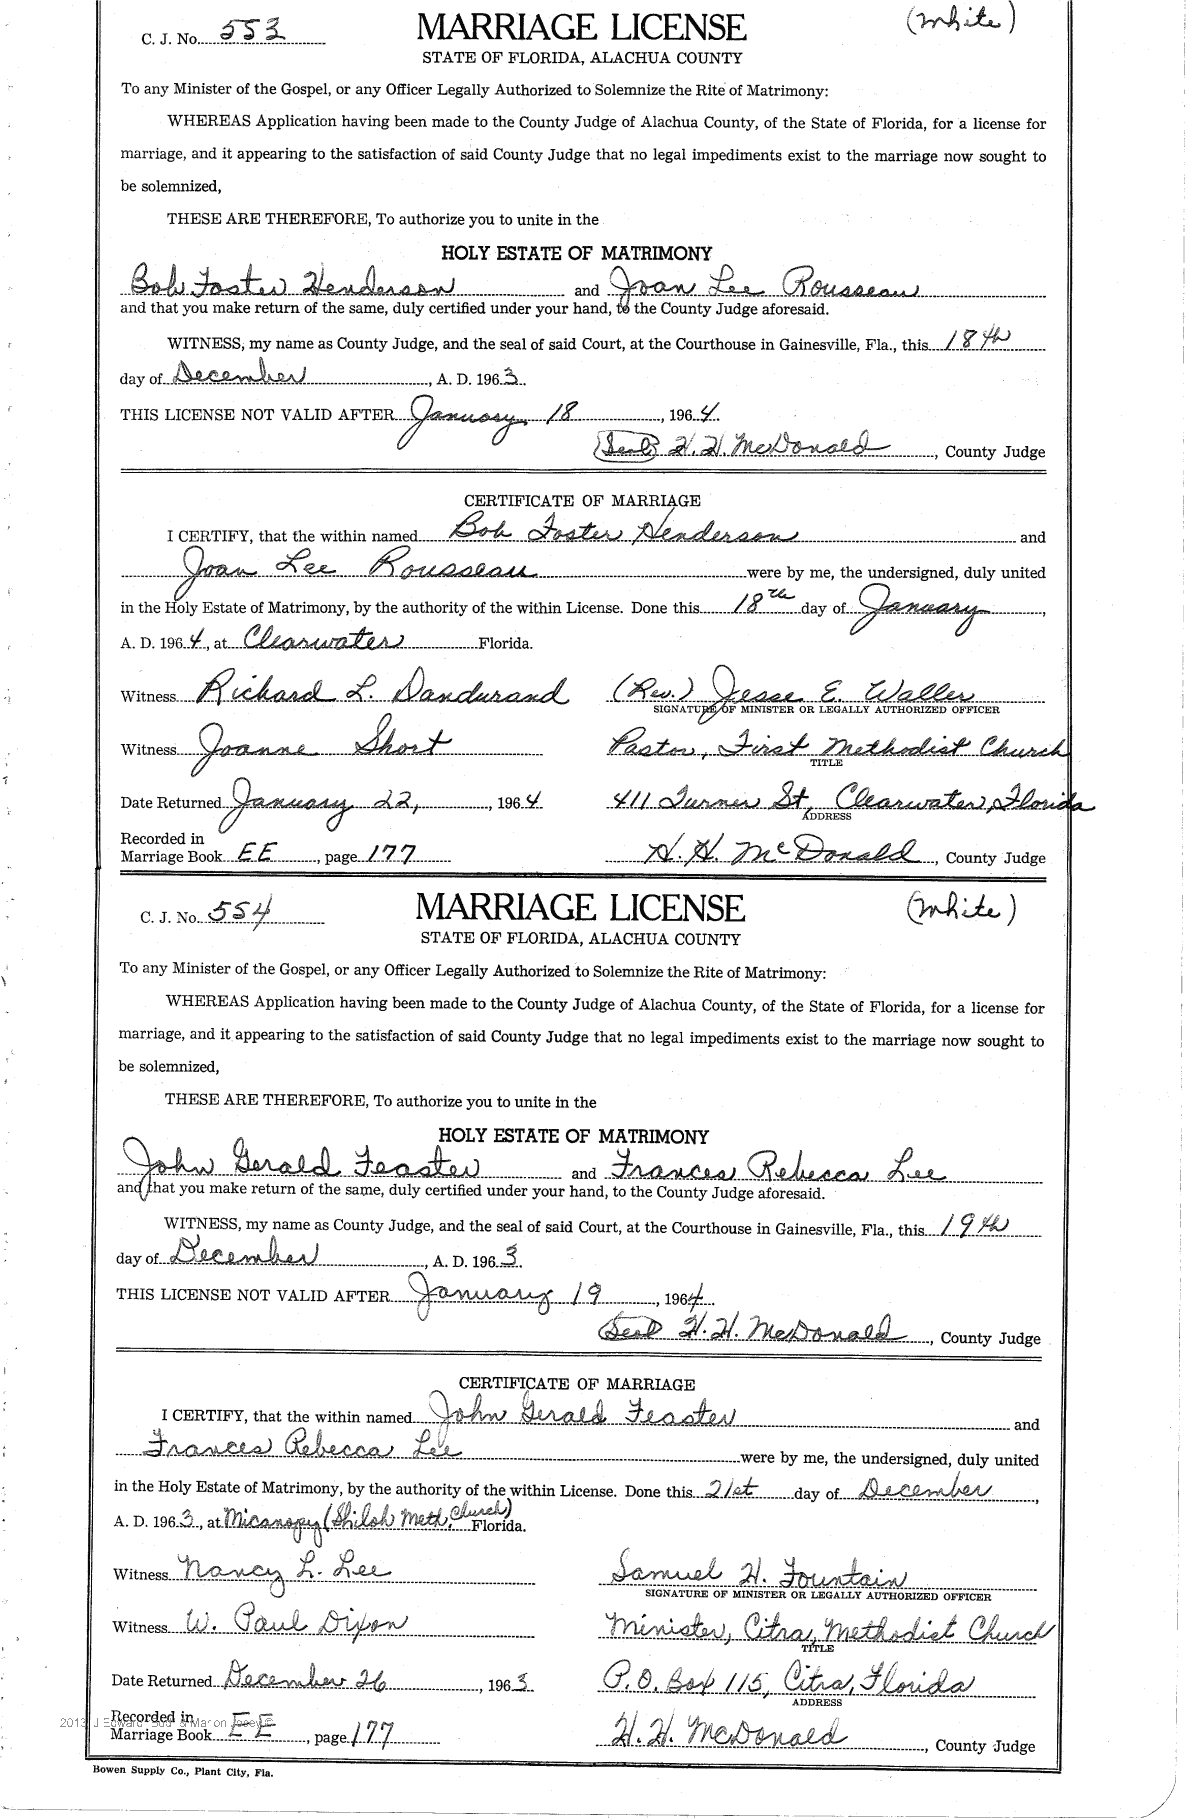 C. J. No. 553 MARRIAGE LICENSE (White)
STATE OF FLORIDA, ALACHUA COUNTY
To any Minister of the Gospel, or any Officer Legally Authorized to Solemnize the Rite of Matrimony:
WHEREAS Application having been made to the County Judge of Alachua County, of the State of Florida, for a license for
marriage, and it appearing to the satisfaction of said County Judge that no legal impediments exist to the marriage now sought to
be solemnized,
THESE ARE THEREFORE, To authorize you to unite in the
HOLY ESTATE OF MATRIMONY
Bob Foster Henderson and Joan Lee Rousseau
and that you make return of the same, duly certified under your hand, to the County Judge aforesaid.
WITNESS, my name as County Judge, and the seal of said Court, at the Courthouse in Gainesville, Fla., this 18th
day of December, A. D. 1963.
THIS LICENSE NOT VALID AFTER January 18, 1964.
(Seal) H. H. McDonald, County Judge
CERTIFICATE OF MARRIAGE
I CERTIFY, that the within named Bob Foster Henderson and
Joan Lee Rousseau were by me, the undersigned, duly united
in the Holy Estate of Matrimony, by the authority of the within License. Done this 18th day of January,
A. D. 1964, at Clearwater Florida.
Witness Richard L. Dandurand (Rev.) Jesse E. Waller
SIGNATURE OF MINISTER OR LEGALLY AUTHORIZED OFFICER
Witness Joanne Short Pastor, First Methodist Church
TITLE
Date Returned January 22, 1964 411 Turner St, Clearwater, Florida
ADDRESS
Recorded in
Marriage Book EE, page 177 H. H. McDonald, County Judge
C. J. No. 554 MARRIAGE LICENSE (White)
STATE OF FLORIDA, ALACHUA COUNTY
To any Minister of the Gospel, or any Officer Legally Authorized to Solemnize the Rite of Matrimony:
WHEREAS Application having been made to the County Judge of Alachua County, of the State of Florida, for a license for
marriage, and it appearing to the satisfaction of said County Judge that no legal impediments exist to the marriage now sought to
be solemnized,
THESE ARE THEREFORE, To authorize you to unite in the
HOLY ESTATE OF MATRIMONY
John Gerald Feaster and Frances Rebecca Lee
and that you make return of the same, duly certified under your hand, to the County Judge aforesaid.
WITNESS, my name as County Judge, and the seal of said Court, at the Courthouse in Gainesville, Fla., this 19th
day of December, A. D. 1963.
THIS LICENSE NOT VALID AFTER January 19, 1964.
Seal H. H. McDonald, County Judge
CERTIFICATE OF MARRIAGE
I CERTIFY, that the within named John Gerald Feaster and
Frances Rebecca Lee were by me, the undersigned, duly united
in the Holy Estate of Matrimony, by the authority of the within License. Done this 21st day of December,
A. D. 1963, at Micanopy (Shiloh Meth. Church) Florida.
Witness Nancy L. Lee Samuel H. Fountain
SIGNATURE OF MINISTER OR LEGALLY AUTHORIZED OFFICER
Witness W. Paul Dixon Minister, Citra, Methodist Church
TITLE
Date Returned December 26, 1963 P.O. Box 115, Citra, Florida
ADDRESS
Recorded in
Marriage Book EE, page 177 H. H. McDonald, County Judge
Bowen Supply Co., Plant City, Fla.